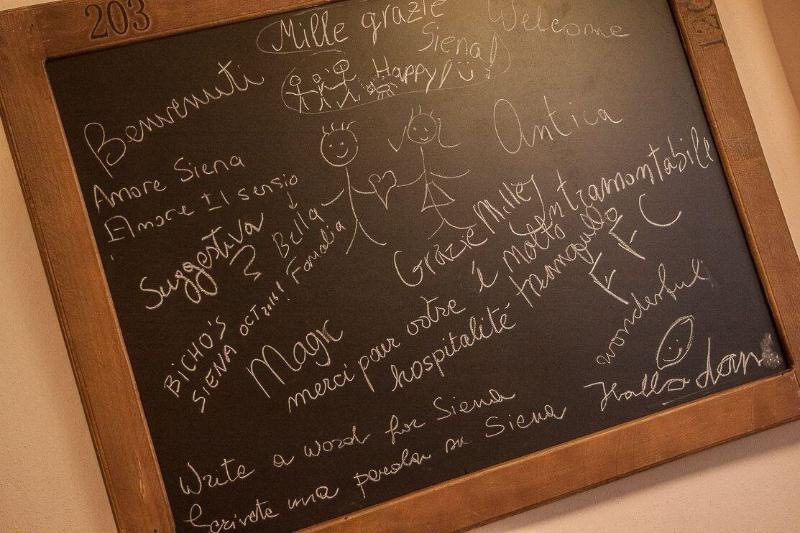 203
Mille grazie
Siena!
Welcome
Happy!
Benvenuti
Antica
Amore Siena
Suggestiva
Bella
Famalia
intramontabile
Grazie Milley
é molto
tranquillo
BICHO'S
SIENA OCT 2016!
Magic
merci pour votre
hospitalité
wonderful
Hallo
Write a word for Siena
Scrivete una parola su Siena